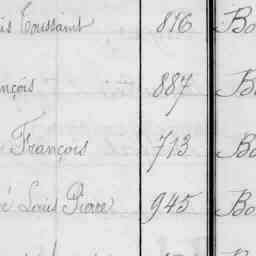 is Toussaint 816 Bo
nçois 887 B
François 713 Bo
é Louis Pierre 945 Bo